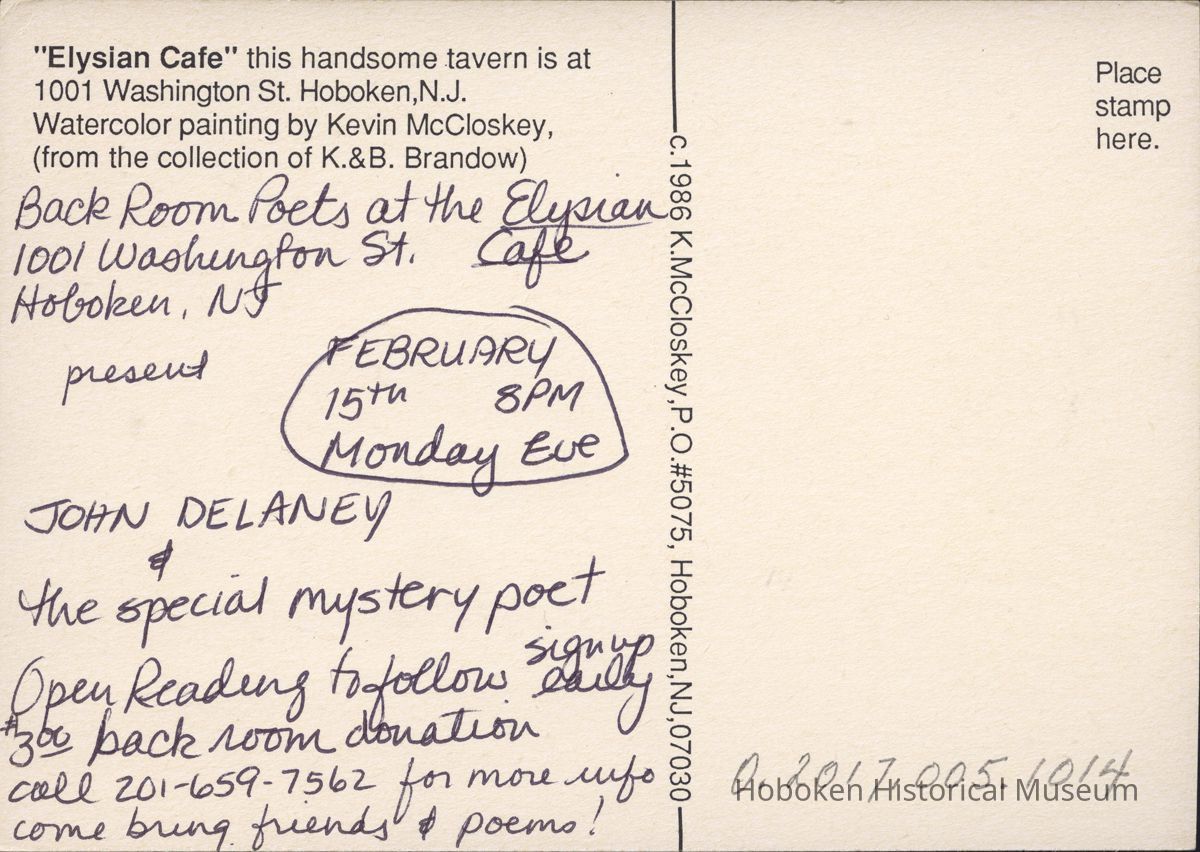 "Elysian Cafe" this handsome tavern is at
1001 Washington St. Hoboken,N.J.
Watercolor painting by Kevin McCloskey,
(from the collection of K.&B. Brandow)
Back Room Poets at the Elysian
1001 Washington St. Cafe
Hoboken, NJ
present
FEBRUARY
15th 8PM
Monday Eve
JOHN DELANEY
&
the special mystery poet
Open Reading to follow sign up
early
$3.00 back room donation
call 201-659-7562 for more info
come bring friends & poems!
c.1986 K.McCloskey,P.O.#5075, Hoboken,NJ,07030
Place
stamp
here.
A. 2017.005.1014
Hoboken Historical Museum